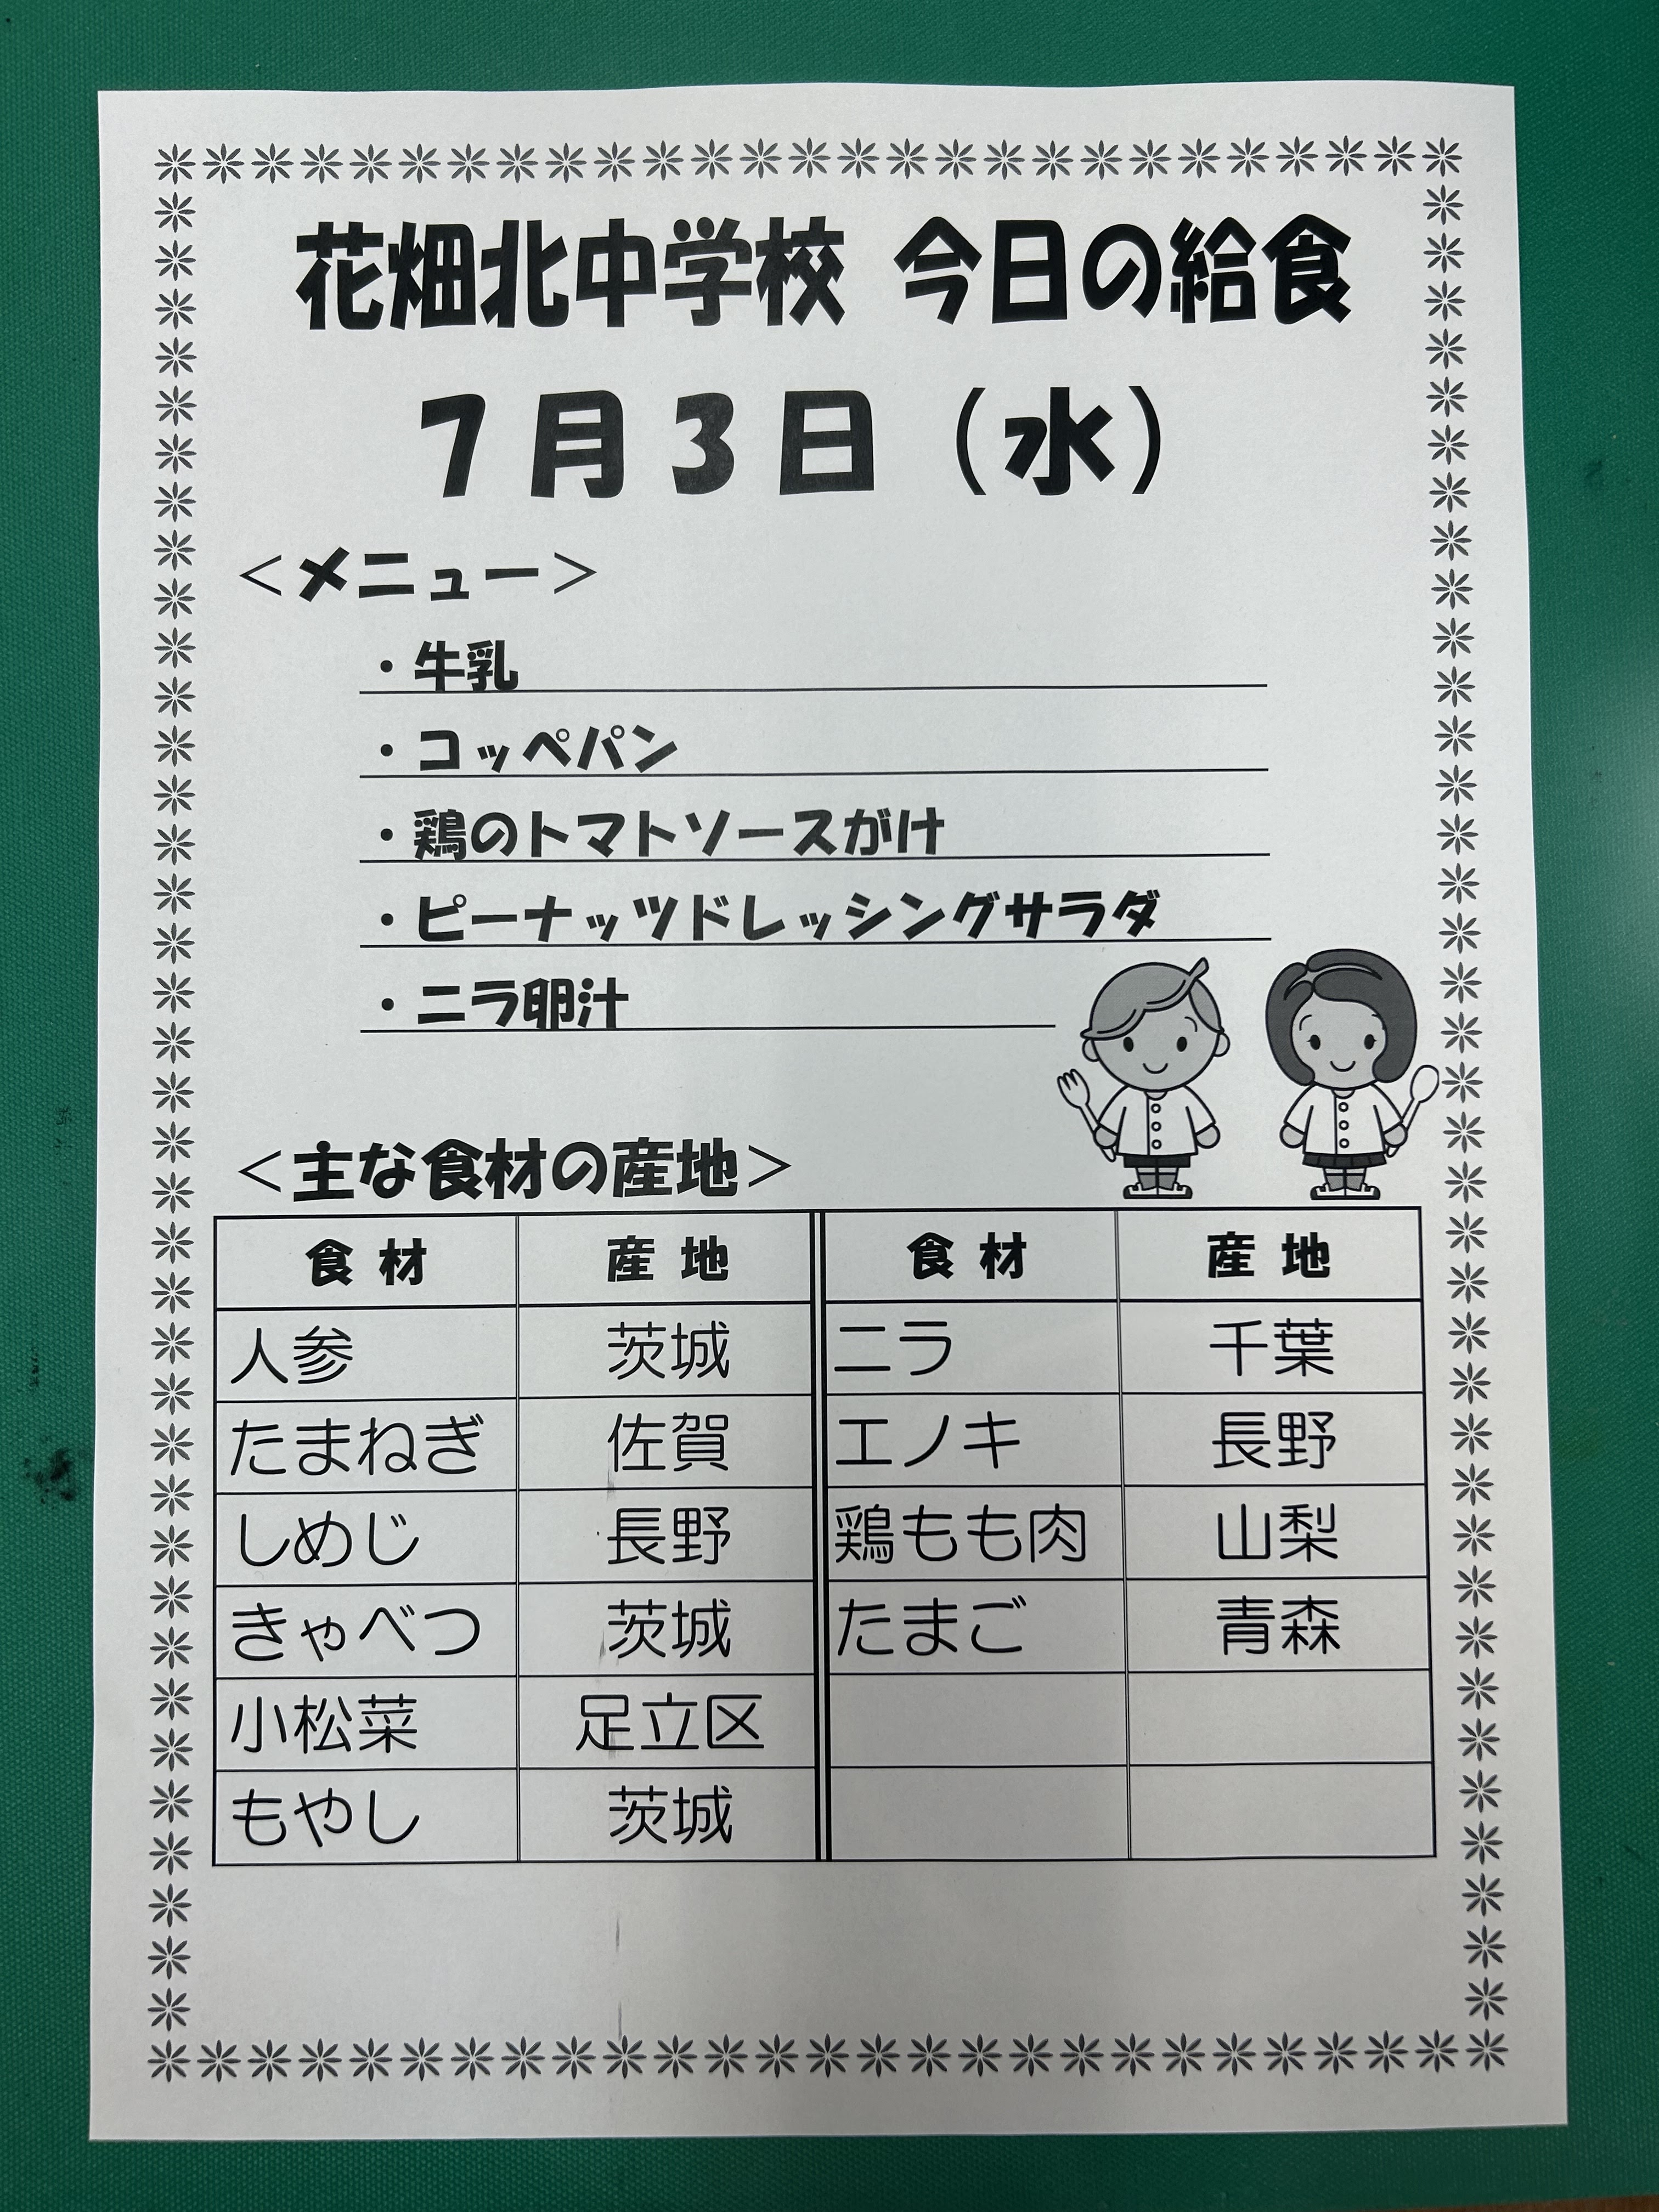 花畑北中学校 今日の給食
7月3日（水）
＜メニュー＞
・牛乳
・コッペパン
・鶏のトマトソースがけ
・ピーナッツドレッシングサラダ
・ニラ卵汁
＜主な食材の産地＞
食材 産地 食材 産地
人参 茨城 ニラ 千葉
たまねぎ 佐賀 エノキ 長野
しめじ 長野 鶏もも肉 山梨
きゃべつ 茨城 たまご 青森
小松菜 足立区
もやし 茨城